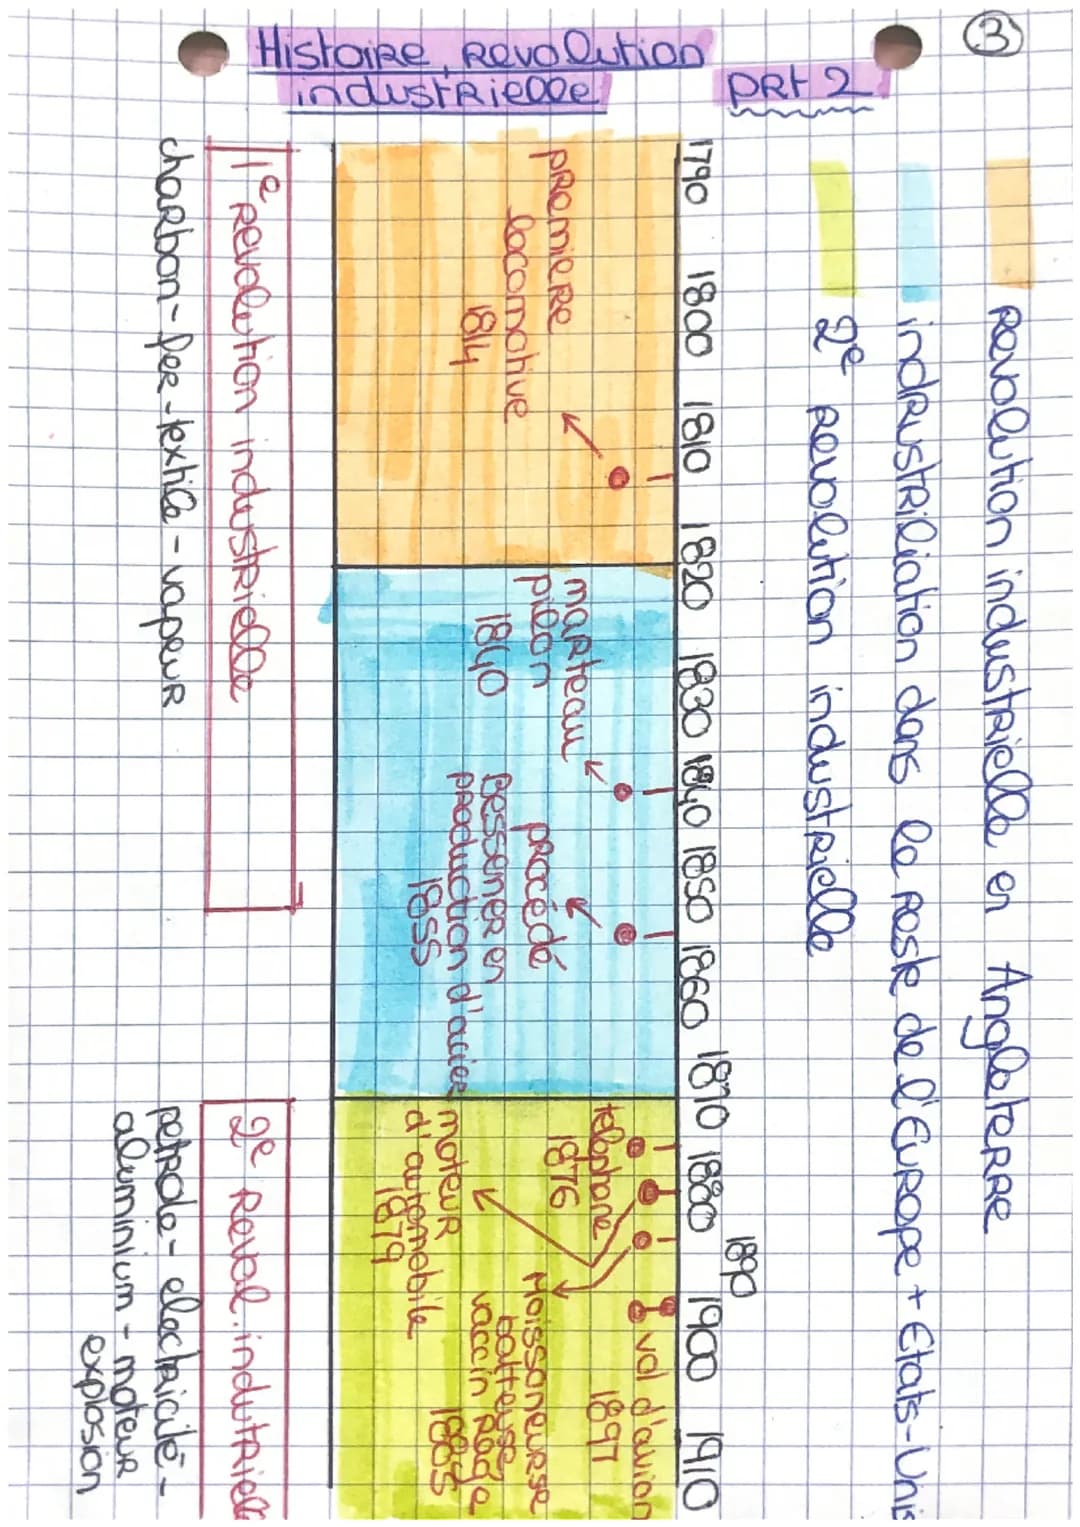 3
Histoire, Revolution
industrielle
PRt 2
Revolution industrielle en Angleterre
indrustriliation dans le reste de l'Europe + Etats-Unis
2e revolution industrielle
1790 1800 1810 1820 1830 1840 1850 1860 1870 1880 1890 1900 1910
premiere
locomotive
1814
marteau
pilon
1840
procédé
Bessener en
production d'acier
1855
telephone
1876
moteur
d'automobile
1879
Moissoneurse
batteuse
vaccin Rage
1885
vol d'avion
1897
1e revolution industrielle
charbon - fer - textile - vapeur
2e Revol. indutrielle
petrole - electricité -
aluminium - moteur
explosion